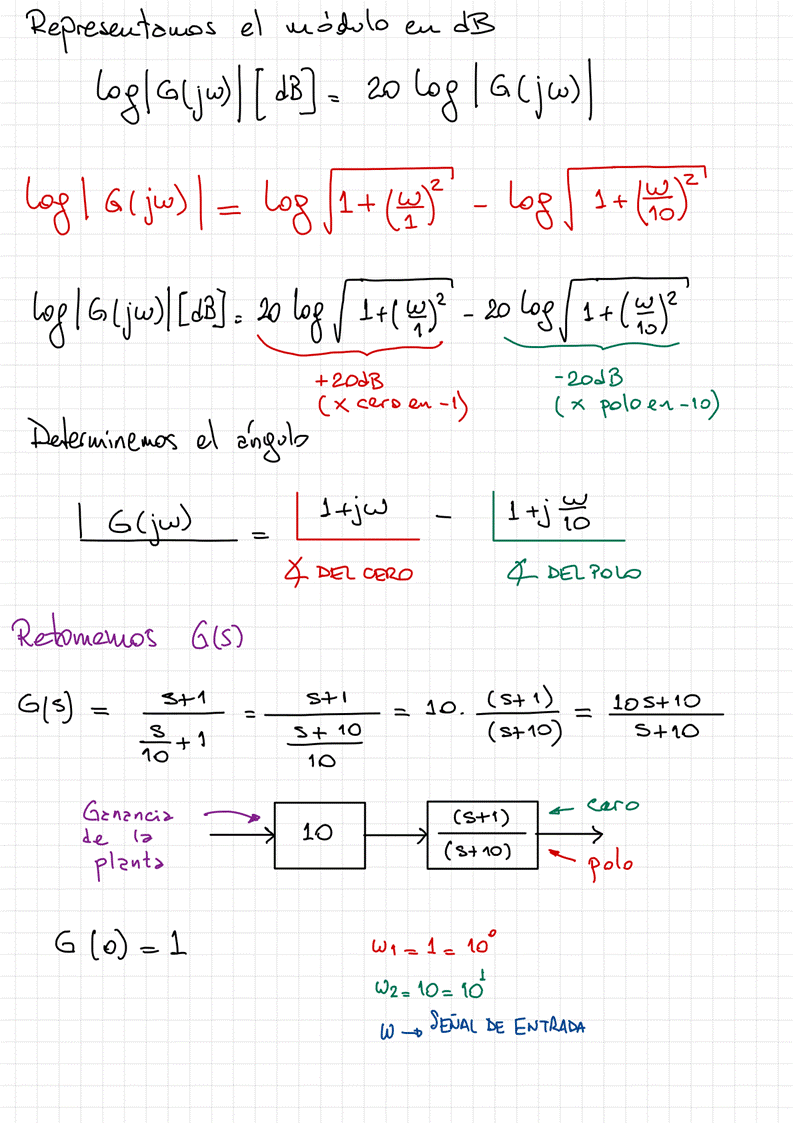 Representamos el módulo en dB
log|G(jω)| [dB] = 20 log |G(jω)|
log |G(jω)| = log √(1+(ω/1)²) - log √(1+(ω/10)²)
log|G(jω)|[dB] = 20 log √(1+(ω/1)²) - 20 log √(1+(ω/10)²)
+20dB
(x cero en -1)
-20dB
(x polo en -10)
Determinemos el ángulo
∠G(jω) = ∠1+jω - ∠1+j ω/10
∡ DEL CERO
∡ DEL POLO
Retomemos G(s)
G(s) = (s+1)/(s/10 + 1) = (s+1)/((s+10)/10) = 10 · (s+1)/(s+10) = (10s+10)/(s+10)
Ganancia
de la
planta
10
(s+1)/(s+10)
cero
polo
G(0) = 1
ω1 = 1 = 10⁰
ω2 = 10 = 10¹
ω → SEÑAL DE ENTRADA